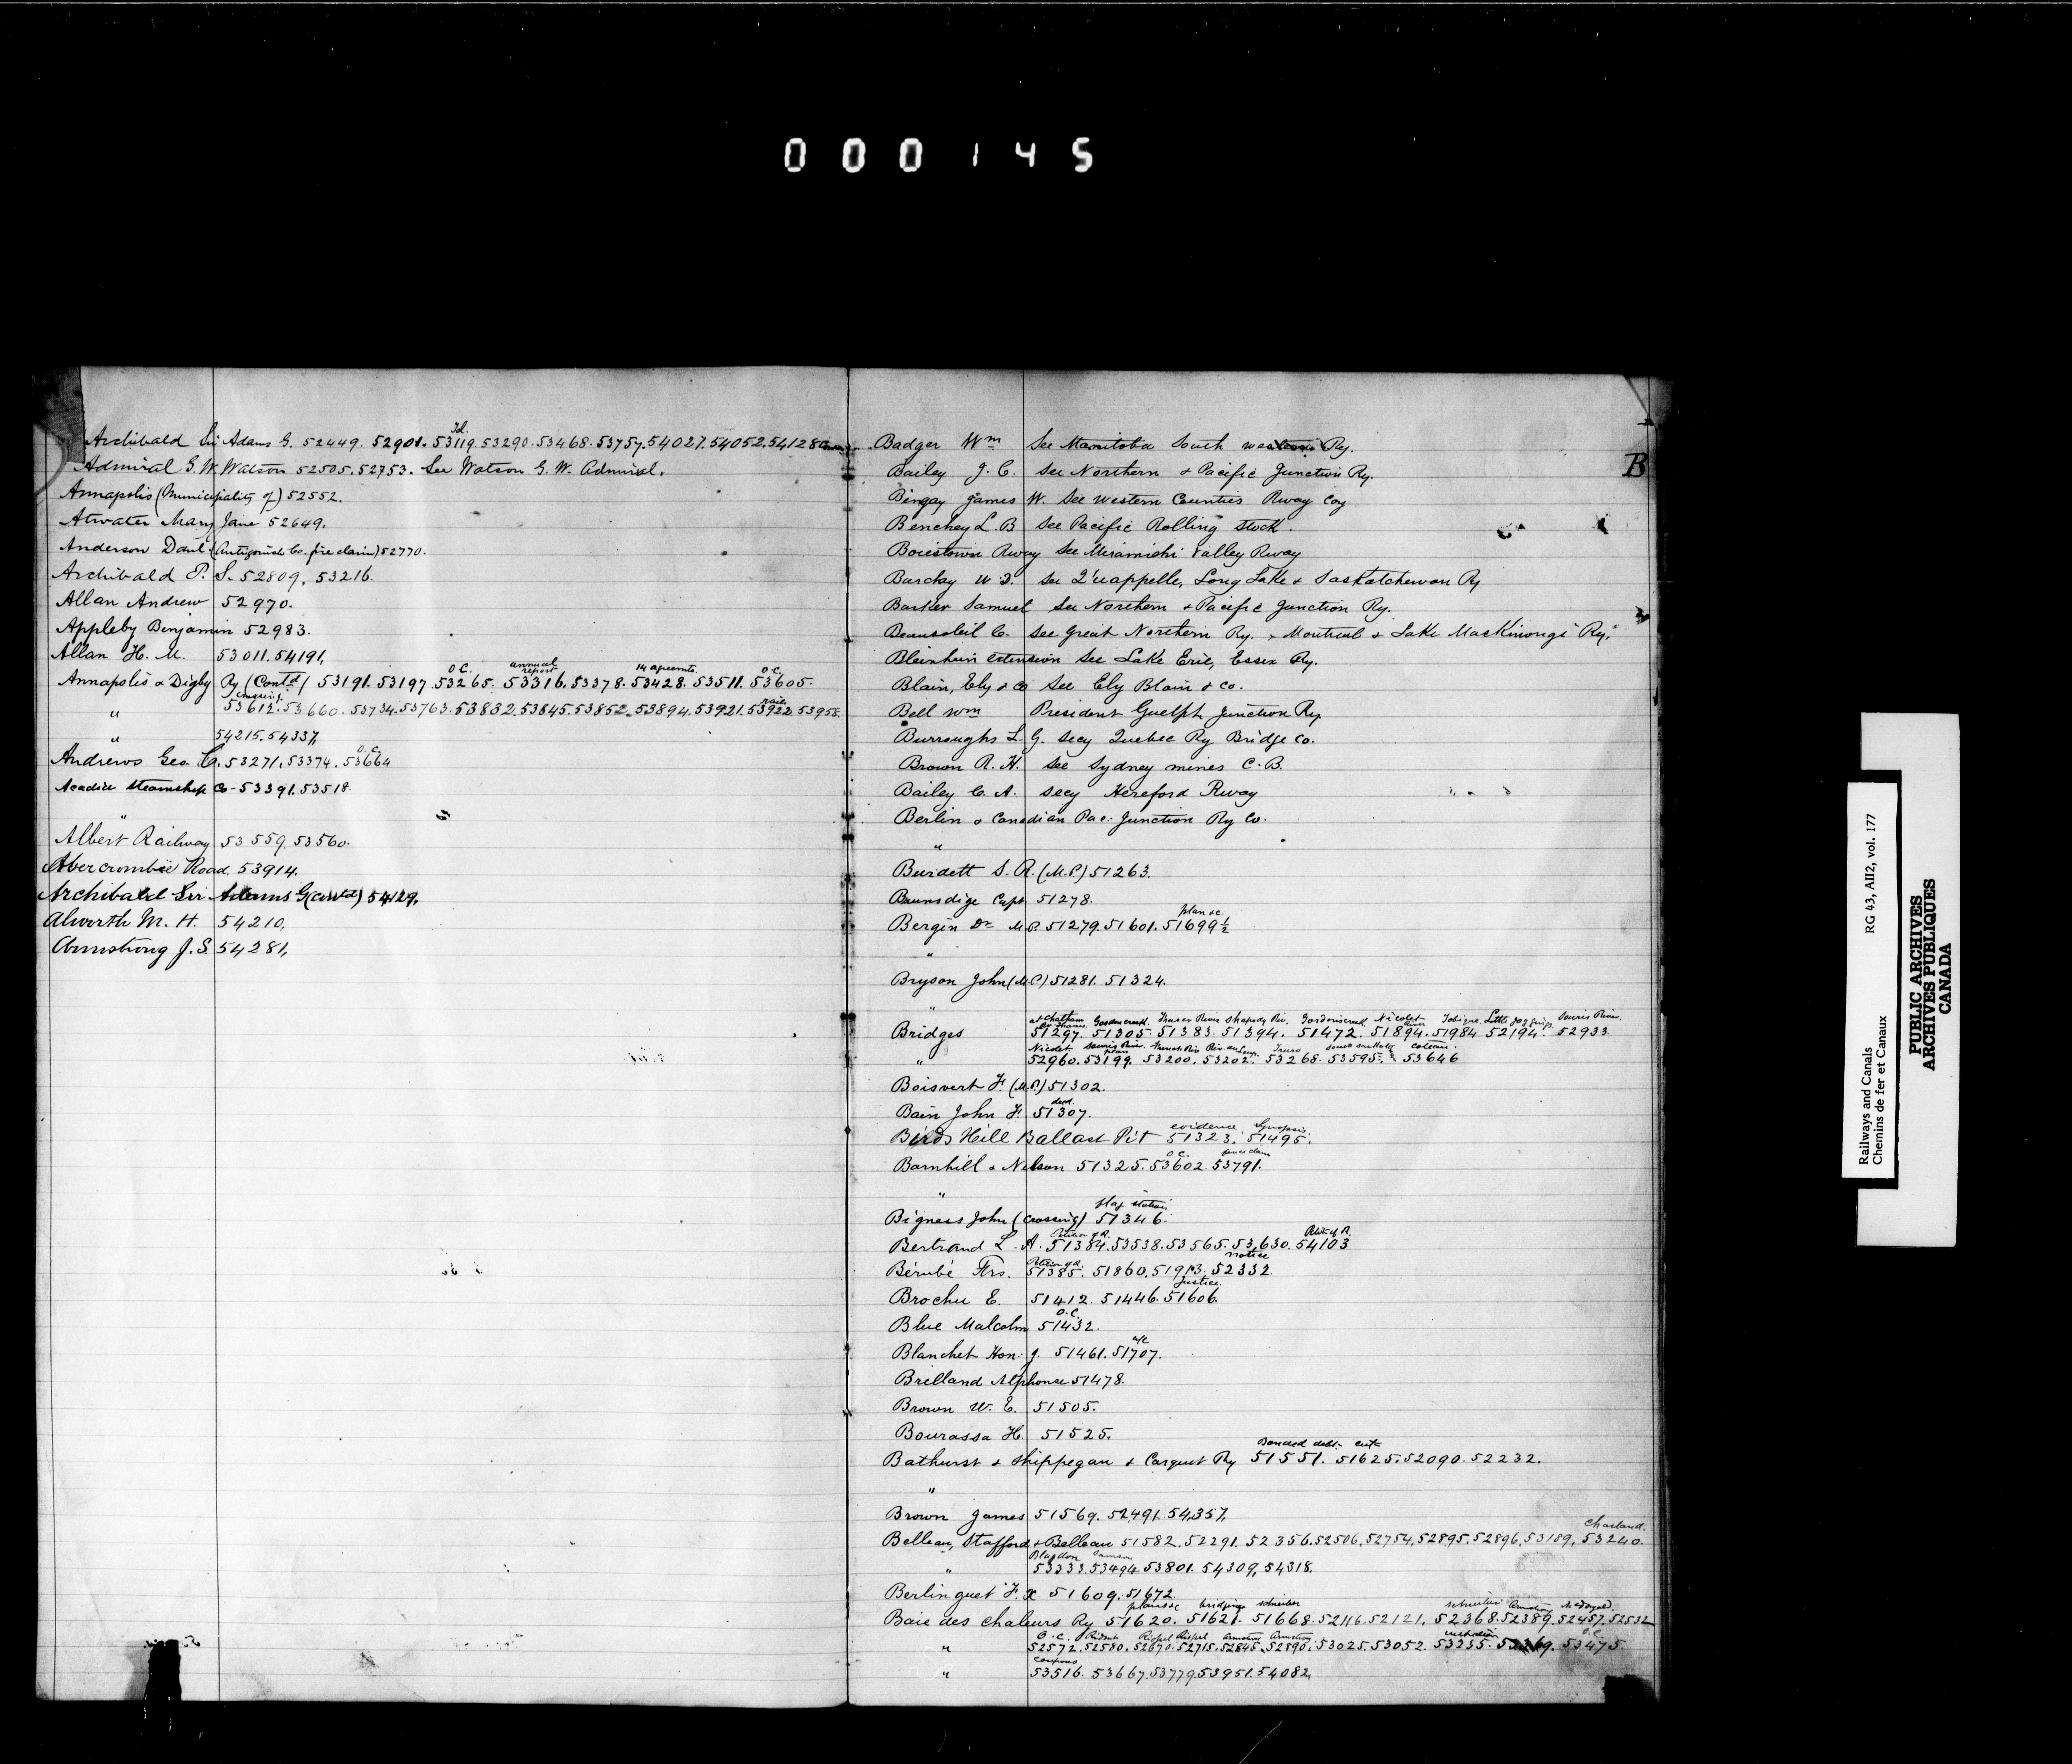 000145
Archibald Sir Adams G. 52449. 52901. 53119. 53290. 53468. 53757. 54027. 54052. 54128
Admiral G. W. Watson 52505. 52753. See Watson G. W. Admiral.
Annapolis (Municipality of) 52552.
Atwater Mary Jane 52649.
Anderson Danl (Antigonish Co. fire claim) 52770.
Archibald P. S. 52809, 53216.
Allan Andrew 52970.
Appleby Benjamin 52983.
Allan H. M. 53011. 54191,
O.C. annual report 14 agreemts. O.C.
Annapolis & Digby Ry (Contd) 53191. 53197. 53265. 53316. 53378. 53428. 53511. 53605.
crossing rails
" 53612. 53660. 53734. 53763. 53832. 53845. 53852. 53894. 53921. 53922. 53958.
" 54215. 54337,
O.C.
Andrews Geo C. 53271. 53374. 53664
Acadia Steamship Co - 53391. 53518.
"
Albert Railway 53559. 53560.
Abercrombie Road. 53914.
Archibald Sir Adams G (contd) 54129.
Alworth M. H. 54210,
Armstrong J. S. 54281,
B
Badger Wm See Manitoba South western Ry.
Bailey J. C. see Northern & Pacific Junction Ry.
Bingay James W. See Western Counties Rway Coy
Benchey L. B see Pacific Rolling Stock.
Boiestown Rway see Miramichi Valley Rway
Barclay W J. see Q'uappelle, Long Lake & Saskatchewan Ry
Barker Samuel see Northern & Pacific Junction Ry.
Beausoleil C. see Great Northern Ry. & Montreal & Lake Maskinongé Ry.
Bleinhein extension see Lake Erie, Essex Ry.
Blain, Ely & co see Ely Blain & co.
Bell Wm President Guelph Junction Ry
Burroughs L G. Secy Quebec Ry Bridge Co.
Brown R. H. see Sydney mines C. B.
Bailey C. A. secy Hereford Rway
Berlin & Canadian Pac. Junction Ry Co.
"
Burdett S. R. (M.P.) 51263.
Burnsdige Capt 51278.
plan &c
Bergin Dr M.P. 51279. 51601. 51699½
"
Bryson John (M.P.) 51281. 51324.
"
at Chatham Gordon creek. Fraser River Gordon creek Nicolet River Tobique. Little Joggins. Souris River.
Bridges 51297. 51305. 51383. 51394. 51472. 51894. 51984. 52194. 52933
Nicolet Souris River plan French Riv Riv. du Loup. Truro coteau.
" 52960. 53199. 53200. 53202. 53268. 53595. 53646
Boisvert F. (M.P.) 51302.
deed.
Bain John F. 51307.
evidence Synopsis
Birds Hill Ballast Pit 51323. 51495.
O.C.
Barnhill & Nelson 51325. 53602. 53791.
"
flag station
Bigness John (crossing) 51346.
Petition of R. Petn of R.
Bertrand L. A. 51384. 53538. 53565. 53630. 54103
Petition of R. notice
Bérubé Frs. 51385. 51860. 51913. 52332.
Justice.
Brochu E. 51412. 51446. 51606.
O.C.
Blue Malcolm 51432.
a/c
Blanchet Hon. J. 51461. 51707.
Brilland Alphonse 51478.
Brown W. E. 51505.
Bourassa H. 51525.
Bonded debt. cert
Bathurst & Shippegan & Carquet Ry 51551. 51625. 52090. 52232.
"
Brown James 51569. 52491. 54357.
Charland.
Belleau, Stafford & Belleau 51582. 52291. 52356. 52506. 52754. 52895. 52896. 53189. 53240.
Blagdon Samson
" 53333. 53494. 53801. 54309, 54318.
Berlinguet F. X. 51609. 51672.
plans &c bridging schreiber schreiber Armstrong McDonald.
Baie des chaleurs Ry 51620. 51621. 51668. 52116. 52121. 52368. 52389. 52457. 52532
O.C. Rident Riopel Riopel Armstrong Armstrong O.C.
" 52572. 52580. 52670. 52715. 52845. 52890. 53025. 53052. 53235. 53475
coupons
" 53516. 53667. 53779. 53951. 54082.
RG 43, AII2, vol. 177
Railways and Canals
Chemins de fer et Canaux
PUBLIC ARCHIVES
ARCHIVES PUBLIQUES
CANADA